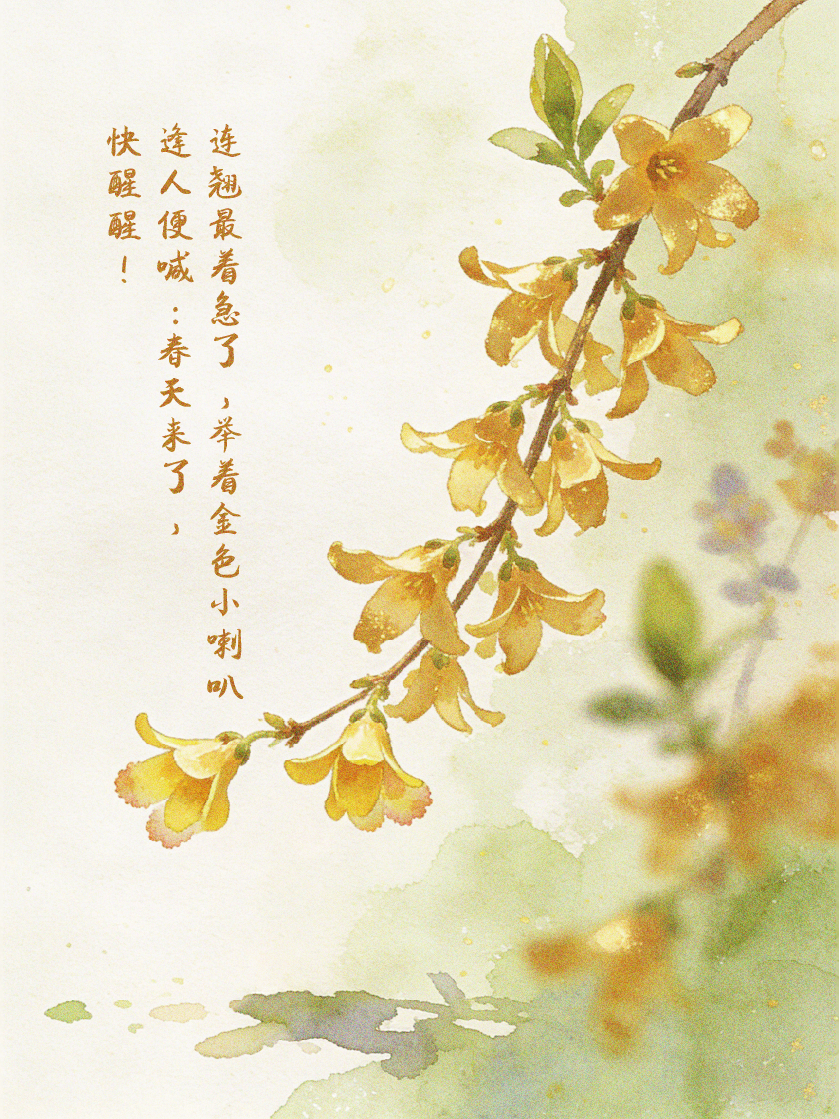 连翘最着急了，举着金色小喇叭
逢人便喊：春天来了，
快醒醒！